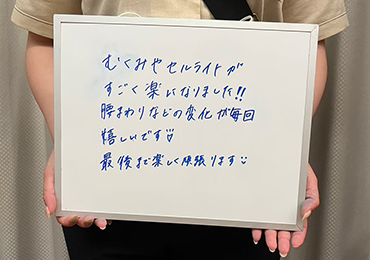 むくみやセルライトが
すごく楽になりました!!
腰まわりなどの変化が毎回
嬉しいです
最後まで楽しく頑張ります